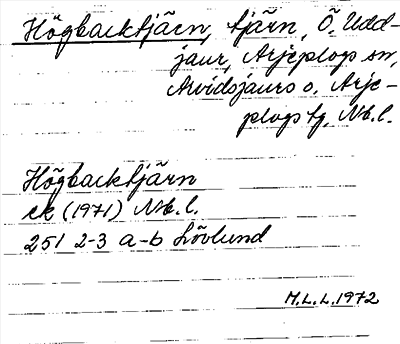 Högbacktjärn, tjärn, Ö. Udd-
jaur, Arjeplogs sn,
Arvidsjaurs o. Arje-
plogs tg, Nb.l.
Högbacktjärn
ek (1971) Nb.l.
251 2-3 a-b Lövlund
M.L.L. 1972